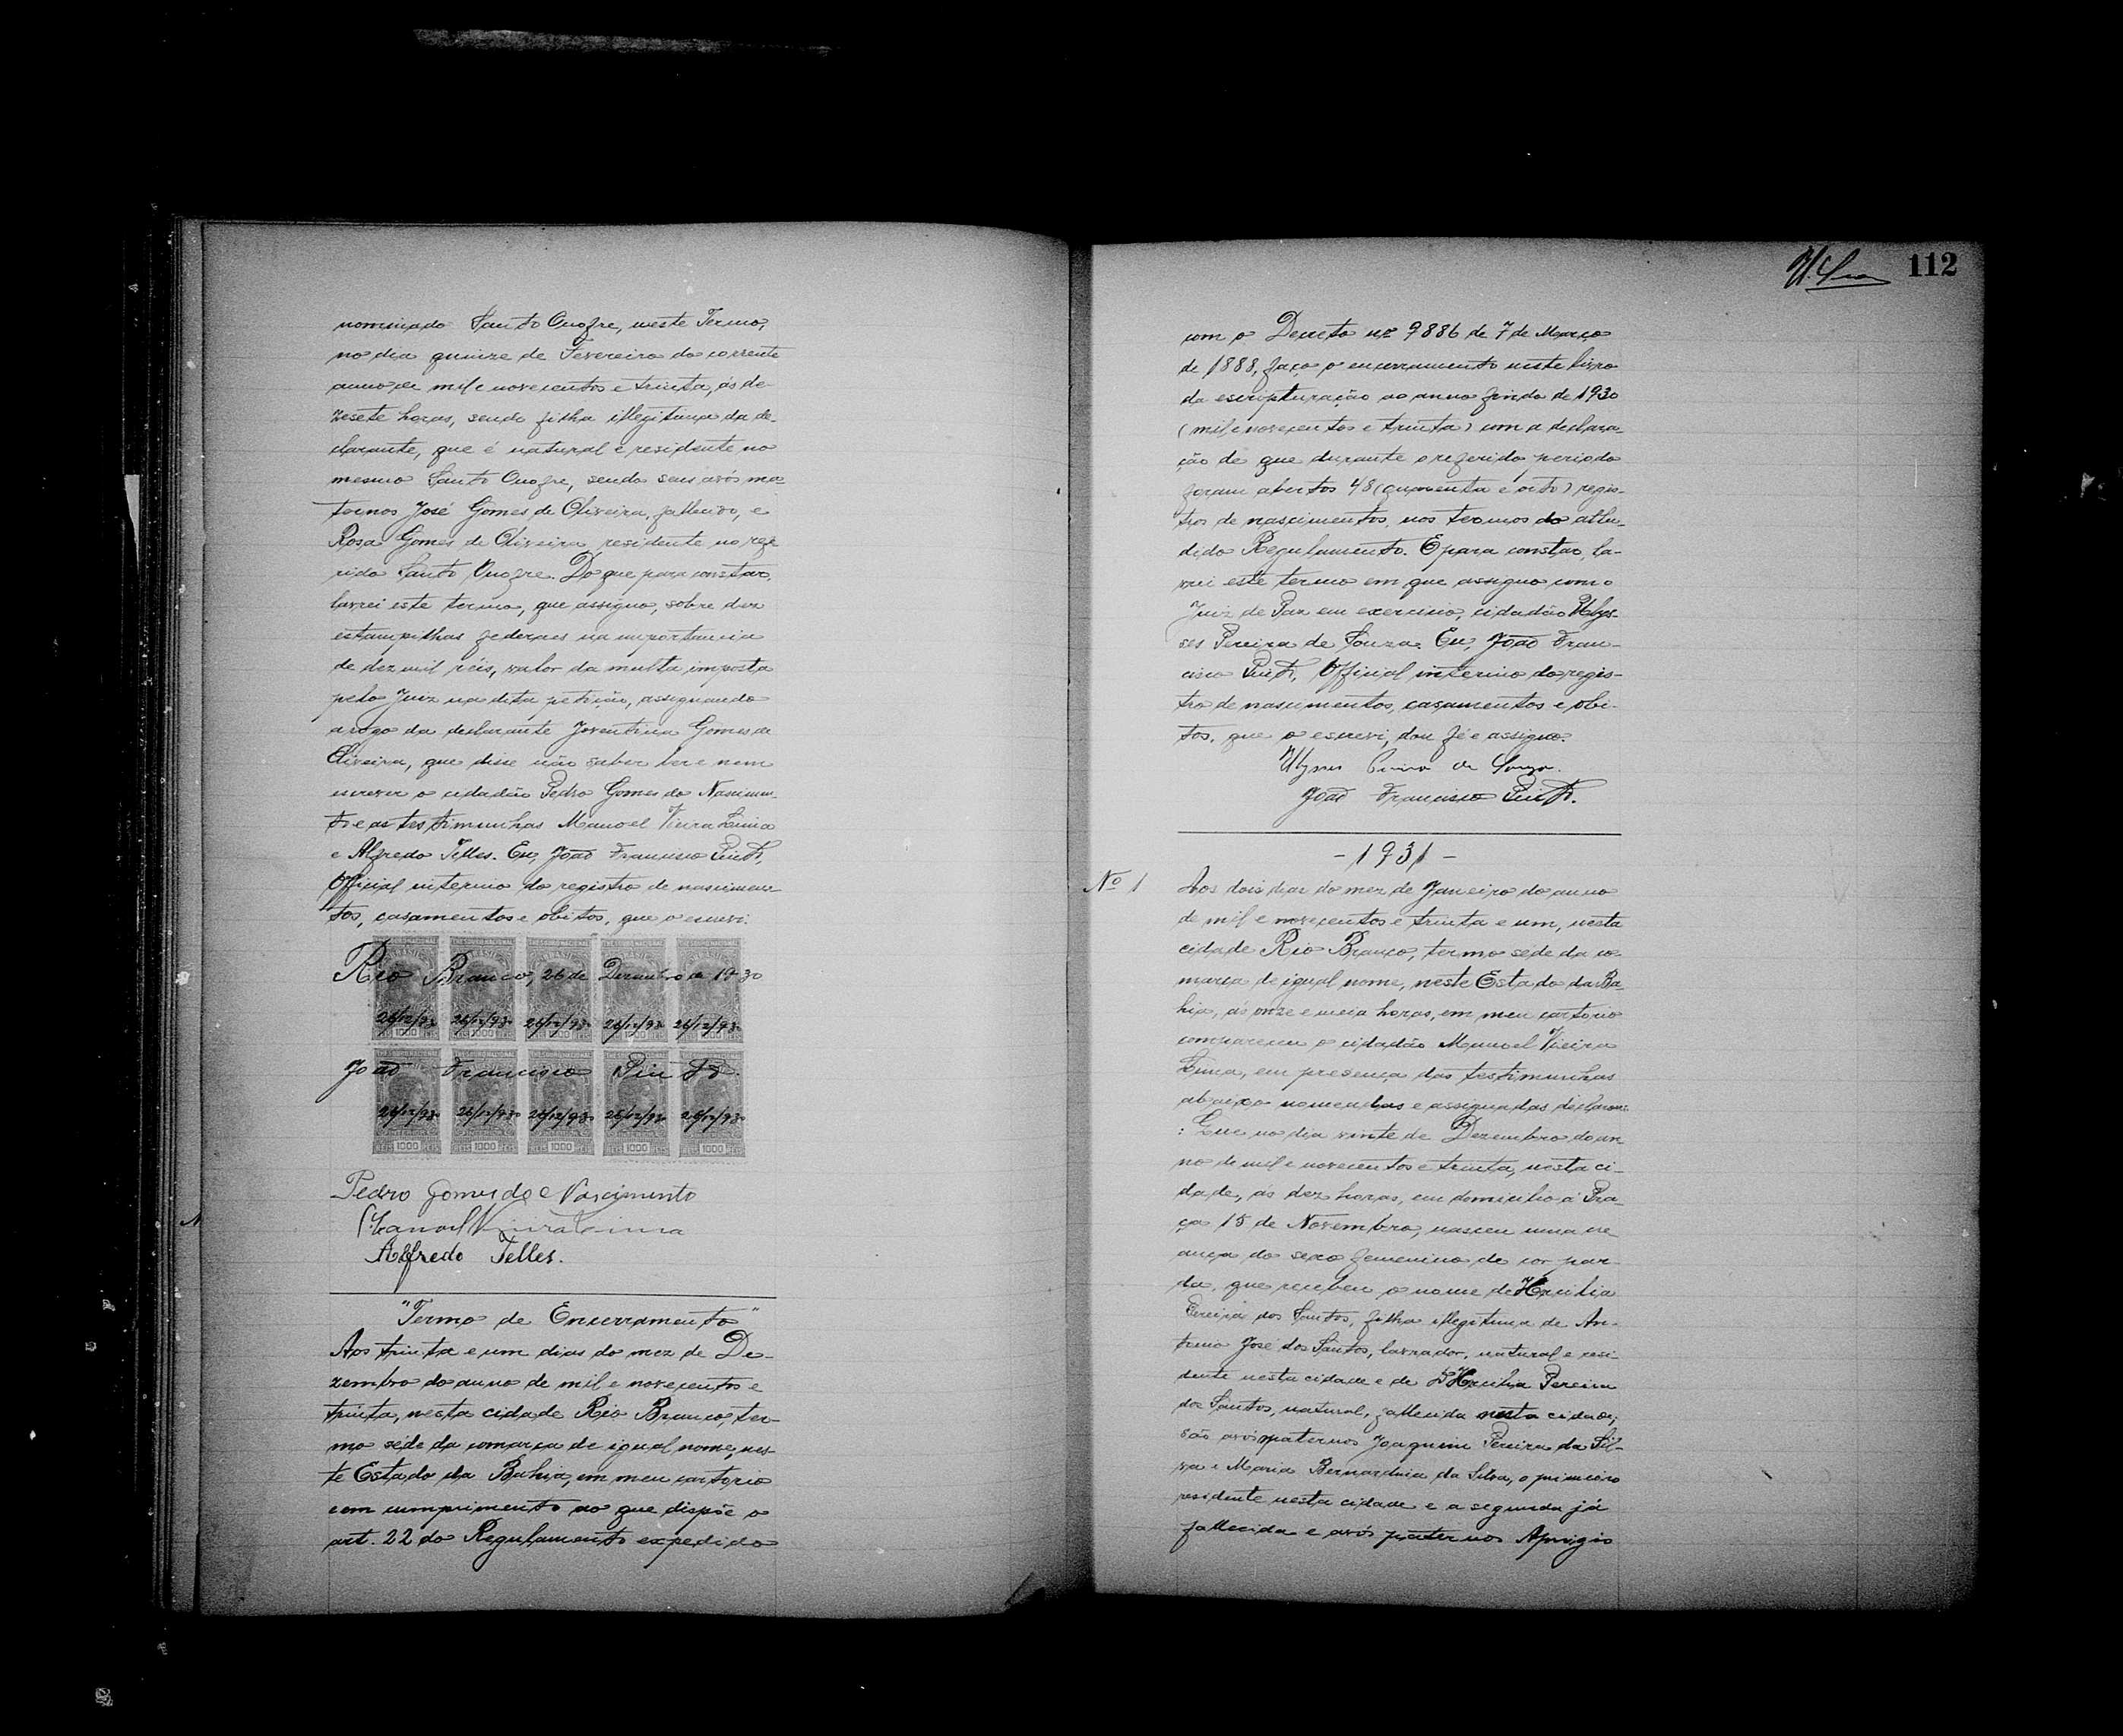 nominado Santo Onofre, neste Termo,
no dia quinze de Fevereiro do corrente
anno de mil e novecentos e trinta, ás de-
zesete horas, sendo filha illegitima da de-
clarante, que é natural e residente no
mesmo Santo Onofre, sendo seus avós ma-
ternos José Gomes de Oliveira, fallecido, e
Rosa Gomes de Oliveira, residente no refe
rido Santo Onofre. Do que para constar,
lavrei este termo, que assigno, sobre dez
estampilhas federaes na importancia
de dez mil réis, valor da multa imposta
pelo Juiz na dita petição, assignando
a rogo da declarante Joventina Gomes de
Oliveira, que disse não saber ler e nem
escrever o cidadão Pedro Gomes do Nascimen-
to e as testimunhas Manoel Vieira Lima
e Alfredo Telles. Eu, João Francisco Pinto,
Official interino do registro de nascimen-
tos, casamentos e obitos, que o escrevi.
Rio Branco, 26 de Dezembro de 1930
26/12/930 26/12/930 26/12/930 26/12/930 26/12/930
1000 1000 1000 1000 1000
João Francisco Pinto
26/12/930 26/12/930 26/12/930 26/12/930 26/12/930
1000 1000 1000 1000 1000
Pedro Gomes do Nascimento
Manoel Vieira Lima
Alfredo Telles.
"Termo de Encerramento"
Aos trinta e um dias do mez de De-
zembro do anno de mil e novecentos e
trinta, nesta cidade Rio Branco, ter-
mo séde da comarca de igual nome, nes-
te Estado da Bahia, em meu cartorio
em cumprimento ao que dispõe o
art. 22 do Regulamento expedido
112
com o Decreto nº 9886 de 7 de Março
de 1888, faço o encerramento neste livro
da escripturação do anno findo de 1930
(mil e novecentos e trinta) com a declara-
ção de que durante o referido periodo
foram abertos 48 (quarenta e oito) regis-
tros de nascimentos, nos termos do allu-
dido Regulamento. E para constar, la-
vrei este termo em que assigno com o
Juiz de Paz em exercicio, cidadão Ulys-
ses Pereira de Souza. Eu, João Fran-
cisco Pinto, Official interino do regis-
tro de nascimentos, casamentos e obi-
tos, que o escrevi, dou fé e assigno.
Ulysses Pereira de Souza.
João Francisco Pinto.
-1931-
Nº 1
Aos dois dias do mez de Janeiro do anno
de mil e novecentos e trinta e um, nesta
cidade Rio Branco, termo séde da co-
marca de igual nome, neste Estado da Ba-
hia, ás onze e meia horas, em meu cartorio
compareceu o cidadão Manoel Vieira
Lima, em presença das testimunhas
abaixo nomeadas e assignadas declarou:
: Que no dia vinte de Dezembro do an
no de mil e novecentos e trinta, nesta ci-
dade, ás dez horas, em domicilio á Pra-
ça 15 de Novembro, nasceu uma cre
ança do sexo femenino de cor par-
da, que recebeu o nome de Hercilia
Pereira dos Santos, filha illegitima de An-
tonio José dos Santos, lavrador, natural e resi-
dente nesta cidade e de D. Hercilia Pereira
dos Santos, natural, fallecida nesta cidade;
são avós maternos Joaquim Pereira da Sil-
va e Maria Bernardina da Silva, o primeiro
residente nesta cidade e a segunda já
fallecida e avós paternos Aprigio